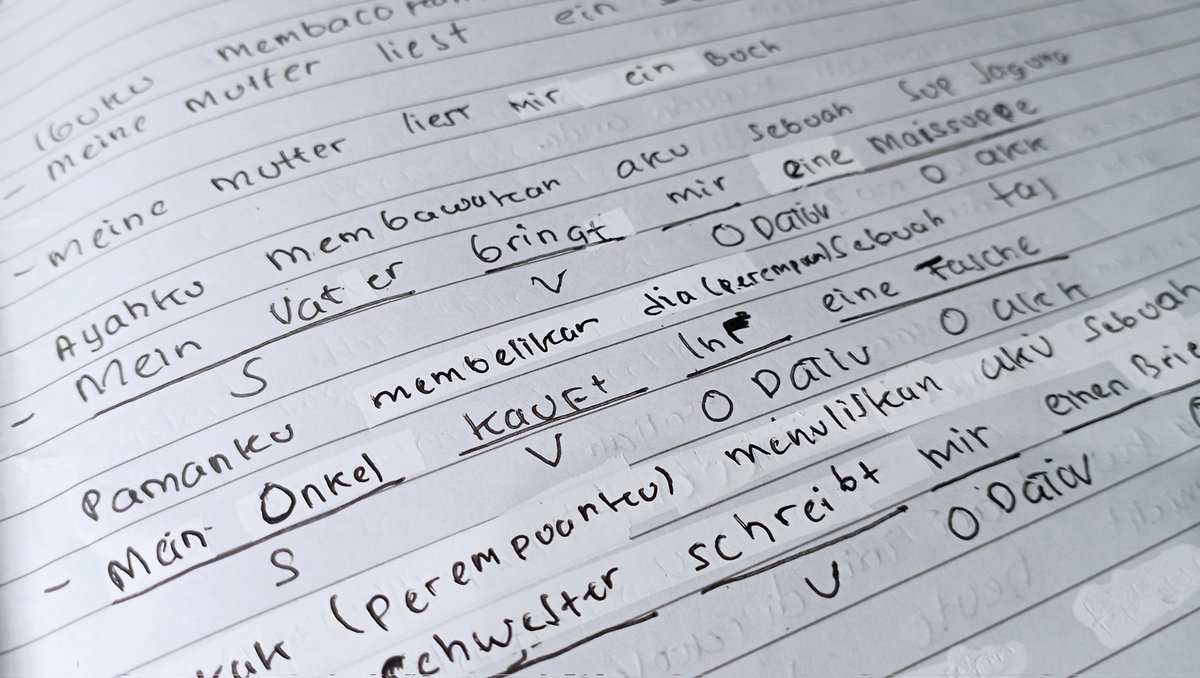 Ibuku membaca
- meine Mutter liest ein
- meine mutter liest mir ein Buch
Ayahku membawakan aku sebuah sup Jagung
- Mein Vater bringt mir eine Maissuppe
S V O Dativ O akk
Pamanku membelikan dia (perempuan) sebuah tas
- Mein Onkel kauft Ihr eine Tasche
S V O Dativ O akk
kak (perempuanku) menuliskan aku sebuah
schwester schreibt mir einen Brie
V O Dativ